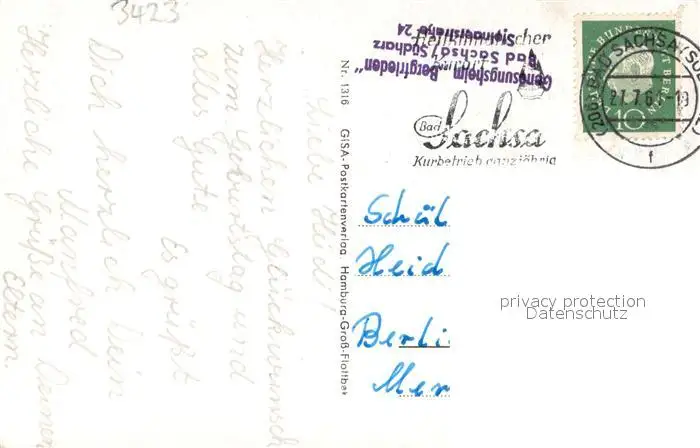 3423
Liebe Heidi!
Herzlichen Glückwunsch
zum Geburtstag und
alles Gute
Es grüßt
Dich herzlich Dein
Manfred
Herzliche Grüße an Deinen
Eltern.
Nr. 1316 GISA-Postkartenverlag, Hamburg-Groß-Flottbek
Genesungsheim "Bergfrieden"
Bad Sachsa / Südharz
24
Heilklimatischer
Kurort
Bad
Sachsa
Kurbetrieb ganzjährig
DEUTSCHE BUNDESPOST BERLIN
10
BAD SACHSA
27.7.6
f
Schäl
Heid
Berli
Mer
privacy protection
Datenschutz